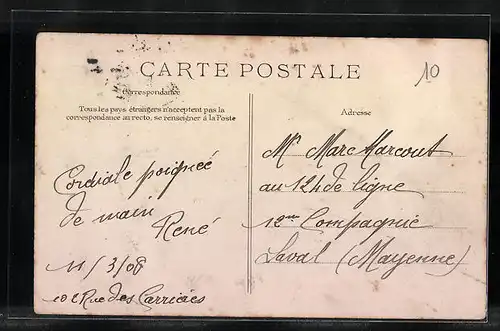 CARTE POSTALE
10
Correspondance
Tous les pays étrangers n'acceptent pas la
correspondance au recto, se renseigner à la Poste
Adresse
Cordiale poignée
de main
René
11/3/08
Rue des Carrières
Mr Marc Harcout
au 124 de ligne
12me Compagnie
Laval (Mayenne)